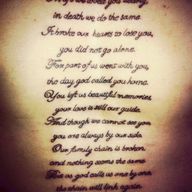 in death we do the same.
It broke our hearts to lose you,
you did not go alone.
For part of us went with you,
the day god called you home.
You left us beautiful memories
your love is still our guide.
And though we cannot see you
you are always by our side
Our family chain is broken
and nothing seems the same
as god calls us one by one
the chain will link again.